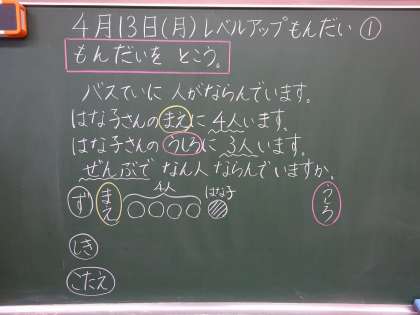 4月13日(月)レベルアップもんだい①
もんだいを とこう。
バスていに 人がならんでいます。
はな子さんの まえに 4人います。
はな子さんの うしろに 3人います。
ぜんぶで なん人 ならんでいますか。
4人 はな子
ず まえ うしろ
しき
こたえ